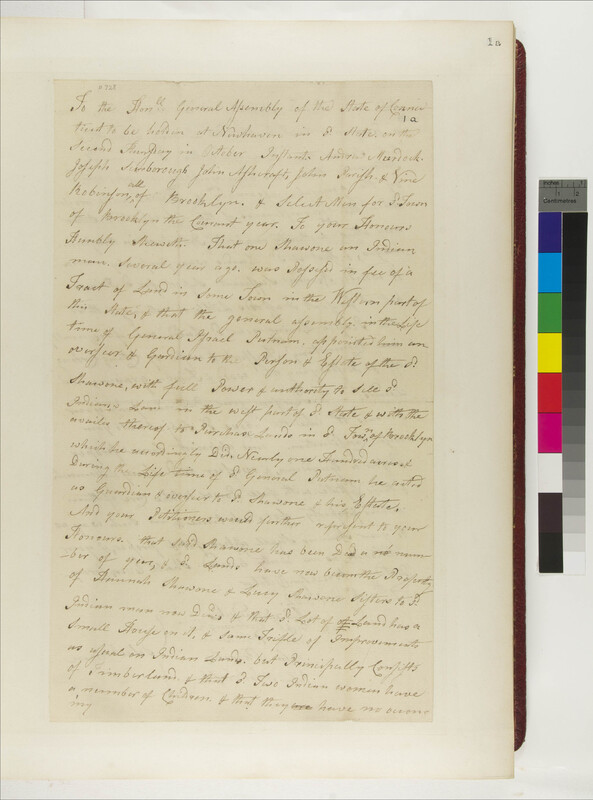 1a
1a
To the Honble General Assembly of the State of Connec
ticut to be holden at Newhaven in sd State on the
Second Thursday in October Instant Andrew Murdock
Joseph Scarborough John Ashcraft, John Parish & Vine
Robinson, all of Brooklyn. & Select Men for sd Town
of Brooklyn the Currant year. To your Honours
Humbly Sheweth. That one Shawone an Indian
man. Several year ago. was Possesd in fee of a
Tract of Land in some Town in the Western part of
this State, & that the general assembly in the Life
time of General Israel Putnam, appointed him an
overseer & Gardian to the Person & Estate of the sd
Shawone, with full Power & authority to sell sd
Indians Land in the west part of sd State & with the
availes thereof to Purchase Lands in sd Town of Brooklyn
which he accordingly Did. Newly one Hundred acres &
During the Life time of sd General Putnam he acted
as Guardian & overseer to sd Shawone & his Estate.
And your Petitioners would further represent to your
Honours. that said Shawone has been Dead a num
ber of years, & sd Lands have now become the Property
of Hannah Shawone & Lucy Shawone Sisters to sd
Indian man now Dead & that sd Lot of Land has a
Small House on it, & some Trifle of Improvements
as usual on Indian Lands. but Principally Consists
of Timberland. & that sd Two Indian women have
a number of Children. & that they have no